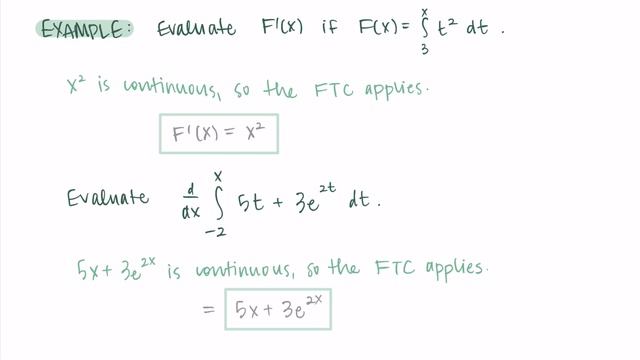 EXAMPLE: Evaluate F'(x) if F(x) = ∫₃ˣ t² dt.
x² is continuous, so the FTC applies.
F'(x) = x²
Evaluate d/dx ∫₋₂ˣ 5t + 3e²ᵗ dt.
5x + 3e²ˣ is continuous, so the FTC applies.
= 5x + 3e²ˣ